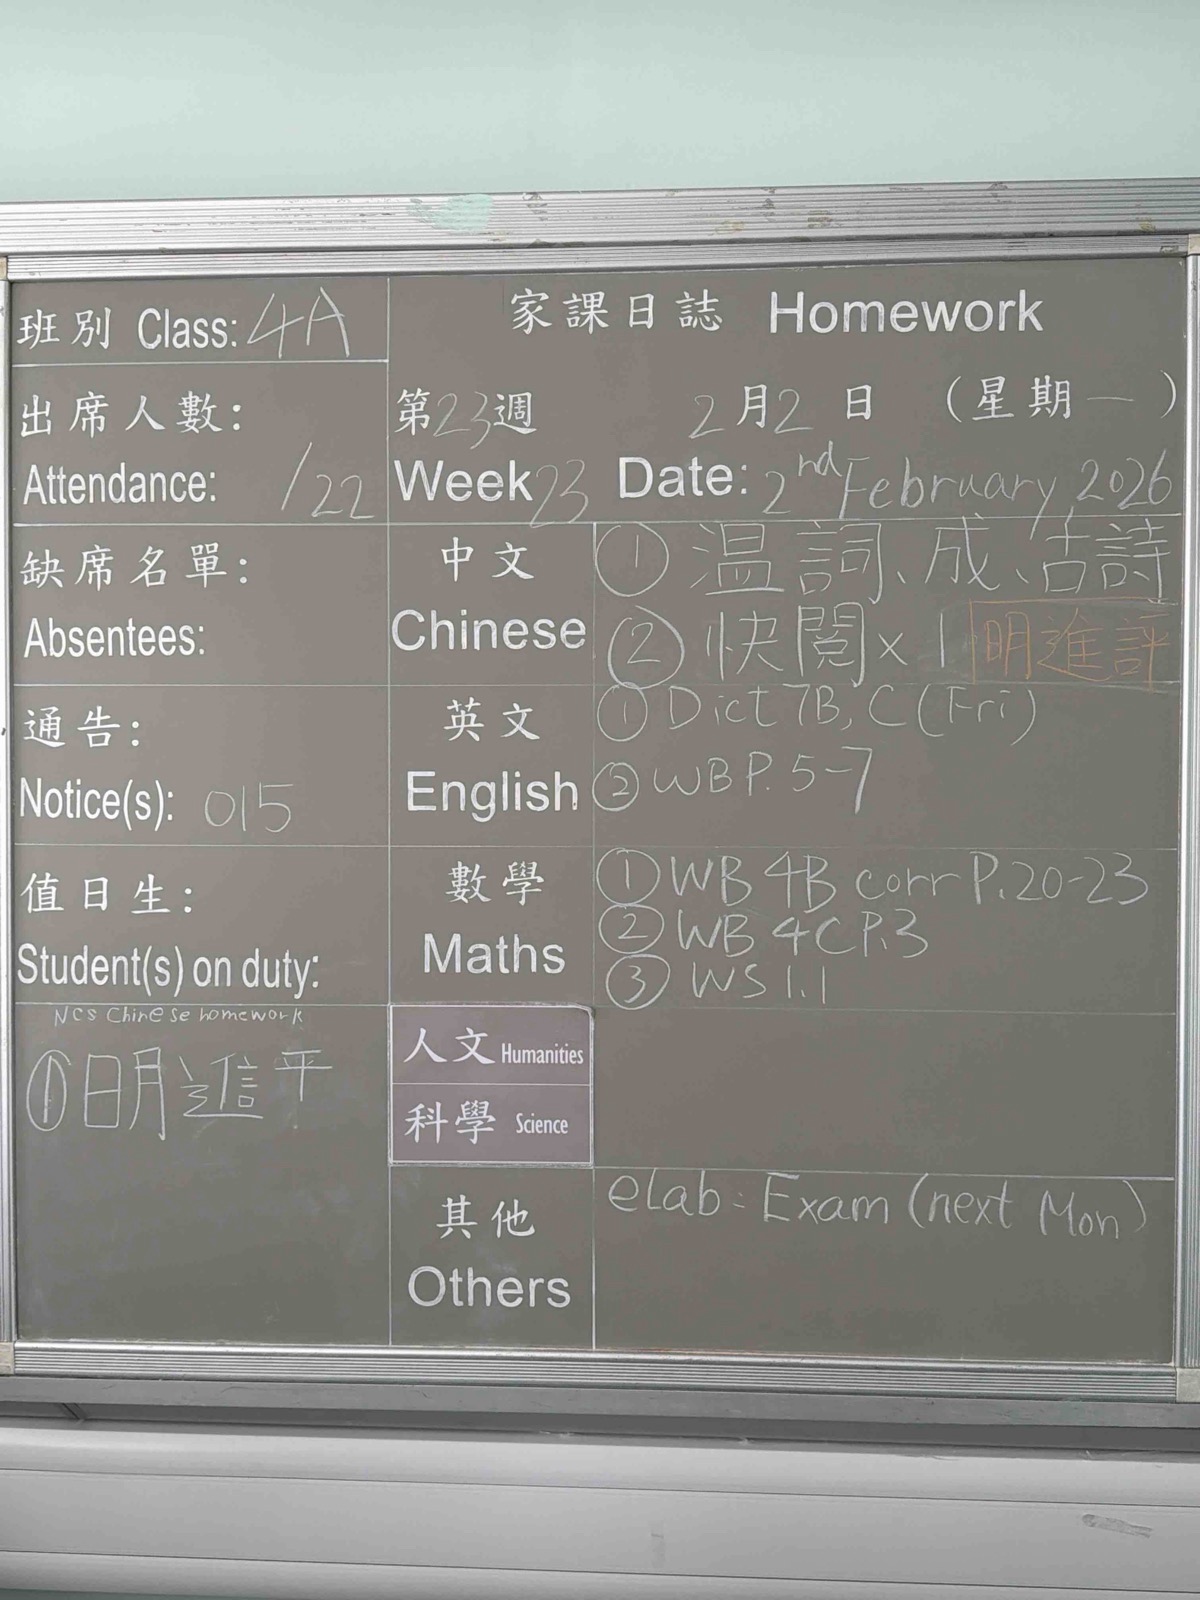 班別 Class: 4A
家課日誌 Homework
出席人數:
Attendance: /22
第23週 2月2日 (星期一)
Week 23 Date: 2nd February 2026
缺席名單:
Absentees:
中文
Chinese
① 温詞、成、古詩
② 快閱×1 明進評
通告:
Notice(s): 015
英文
English
① Dict 7B, C (Fri)
② WB P. 5-7
值日生:
Student(s) on duty:
數學
Maths
① WB 4B corr P.20-23
② WB 4C P.3
③ WS 1.1
NCS Chinese homework
① 明進平
人文 Humanities
科學 Science
其他
Others
eLab: Exam (next Mon)